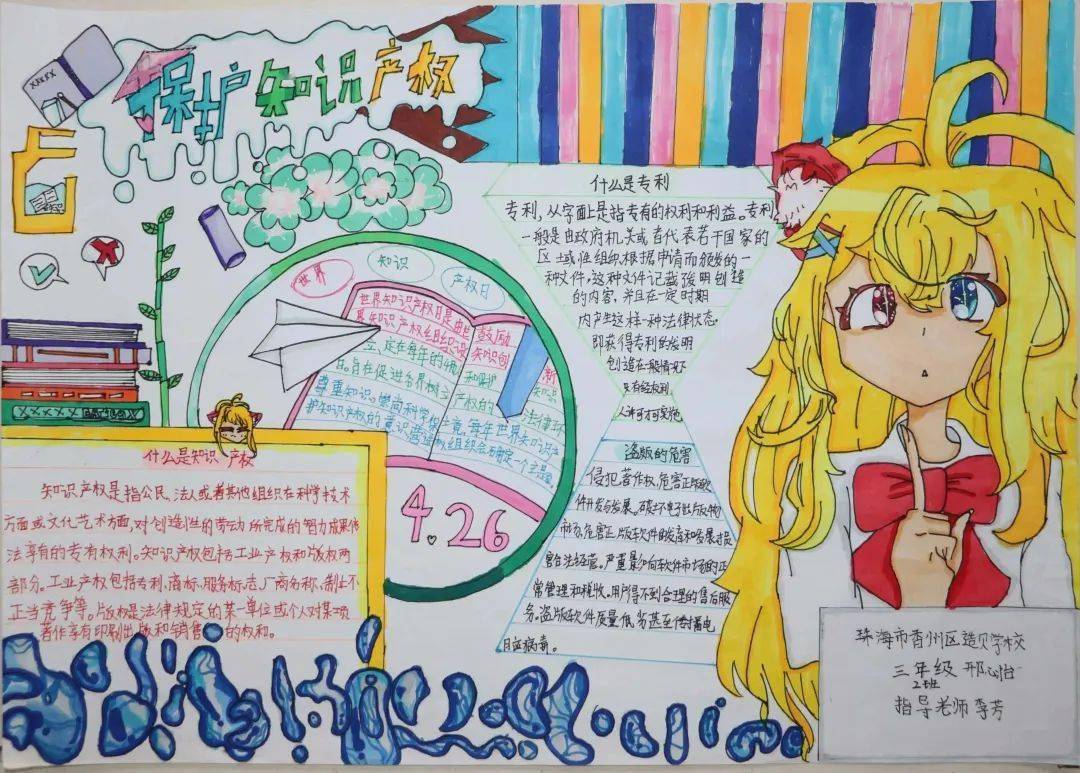 保护知识产权
世界
知识
产权日
世界知识产权日是由世
界知识产权组织设
立,定在每年的4
日。旨在促进各界树立
尊重知识。崇尚科学
护知识产权的意识营造
鼓励
知识创新
和保护
产权的
法律环
境。每年世界知识
权组织会确定一个主题。
4.26
什么是专利
专利,从字面上是指专有的权利和利益。专利
一般是由政府机关或者代表若干国家的
区域性组织根据申请而颁发的一
种文件,这种文件记载发明创造
的内容,并且在一定时期
内产生这样一种法律状态,
即获得专利的发明
创造在一般情况下
只有经权利
人许可才可实施
盗版的危害
侵犯著作权,危害正版软
件开发与发展。破坏电子出版物
市场,危害正版软件的发育和发展,损
害合法经营。严重影响软件市场的正
常管理和税收。用户得不到合理的售后服
务。盗版软件质量低劣甚至传播电
目症病毒。
什么是知识产权
知识产权是指公民、法人或者其他组织在科学技术
方面或文化艺术方面,对创造性的劳动所完成的智力成果依
法享有的专有权利。知识产权包括工业产权和版权两
部分。工业产权包括专利、商标、服务标志、厂商名称、制止不
正当竞争等。版权是法律规定的某一单位或个人对某项
著作享有印刷出版和销售的权利。
珠海市香州区造贝学校
三年级
2班
指导老师 李芳